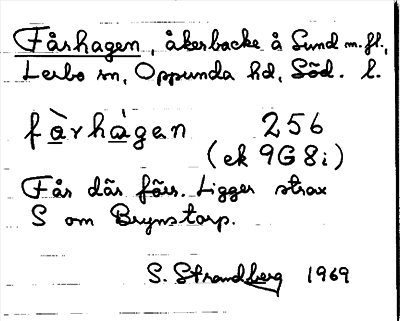 Fårhagen, åkerbacke å Sund m.fl.,
Lerbo sn, Oppunda hd, Söd. l.
fàrhàgen 256
(ek 9G 8i)
Får där förs. Ligger strax
S om Brynstorp.
S. Strandberg 1969